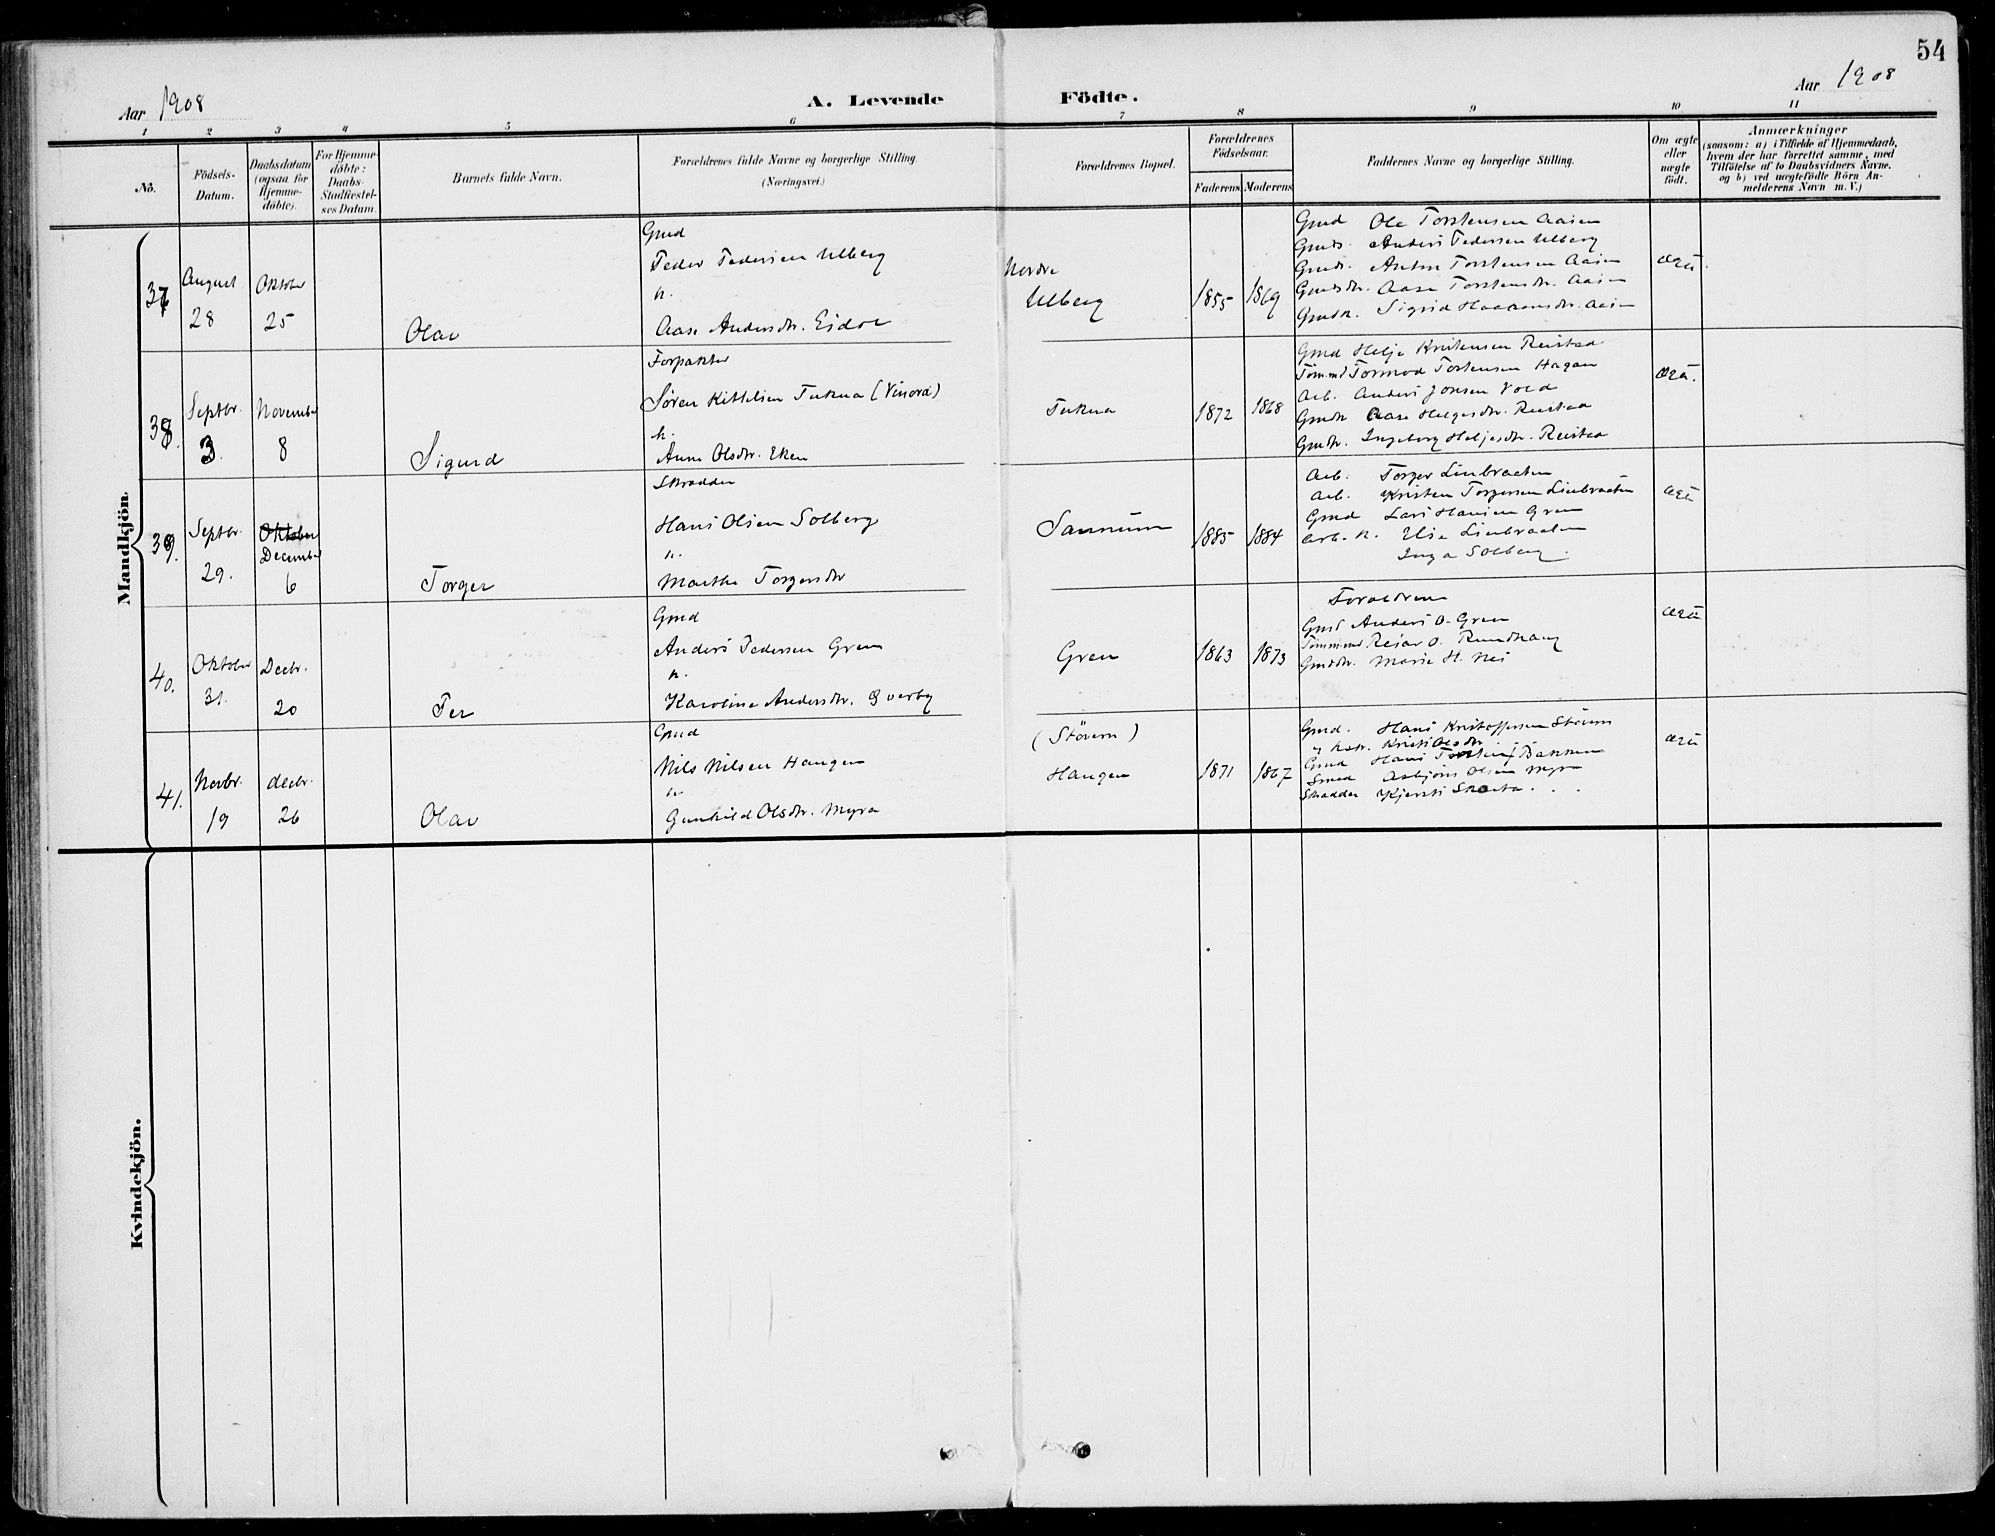 54
Aar 1908
A. Levende Födte.
Aar 1908
1 2 3 4 5 6 7 8 9 10 11
No.
Födsels-
Datum.
Daabsdatum
(ogsaa for
Hjemme-
döbte).
For Hjemme-
döbte:
Daabs-
Stadfæstel-
ses Datum.
Barnets fulde Navn.
Forældrenes fulde Navne og borgerlige Stilling.
(Næringsvei.)
Forældrenes Bopæl.
Forældrenes
Födselsaar.
Faderens Moderens
Faddernes Navne og borgerlige Stilling.
Om ægte
eller
uægte
födt.
Anmærkninger
(saasom: a) i Tilfælde af Hjemmedaab,
hvem der har forrettet samme, med
Tilföielse af to Daabsvidners Navne.
og b) ved uægtefödte Börn An-
melderens Navn m. V.)
Mandkjön.
37
August
28
Oktober
25
Olav
Gmd
Peder Pedersen Ulberg
h.
Aase Andersdtr. Eidal
Nordre
Ulberg
1855 1869
Gmd Ole Torstensen Aasen
Gmds. Anders Pedersen Ulberg
Gmds. Anton Torstensen Aasen
Gmdsdtr. Aase Torstensdtr. Aasen
Gmdk. Sigrid Haakensdtr. Aasen
ægte
38.
Septbr.
3.
November
8
Sigurd
Forpakter
Søren Kittelsen Tukua (Vinora)
h.
Anne Olsdtr. Eken
Tukua
1872 1868
Gmd Helje Kristensen Reistad
Tømmd Tormod Tostensen Hagan
Arb. Anders Jonsen Vold
Gmdk Aase Helgesdtr. Reistad
Gmdtr. Ingeborg Heljesdtr. Reistad
ægte.
39.
Septbr.
29.
Oktober
December
6
Torger
Skrædder
Hans Olsen Solberg
h.
Marthe Torgersdtr
Sannum
1885 1884
Arb. Torger Linbraaten
Arb. Kristen Torgersen Linbraaten
Gmd Lars Hansen Gren
Arb. k. Elise Linbraaten
Inga Solberg.
ægte
40.
Oktober
31.
Decbr.
20
Per
Gmd
Anders Pedersen Gren
h.
Karoline Andersdtr. Sverby
Gren
1863 1873
Forældrene
Gmd Anders O. Gren
Tømmmd Reiar O. Rundhaug
Gmdsdtr. Marie H. Nes
ægte
41.
Novbr.
19
decbr.
26
Olav
Gmd
Nils Nilsen Haugen
h.
Gunhild Olsdtr. Myra
(Støvern)
Haugen
1871 1867
Gmd. Hans Kristoffersen Støvern
Kristi Olsdtr
Gmd Hans Bakken
Smed Asbjørn Olsen Myra
Skrædder Kjersti Skarta
ægte
Kvindekjön.